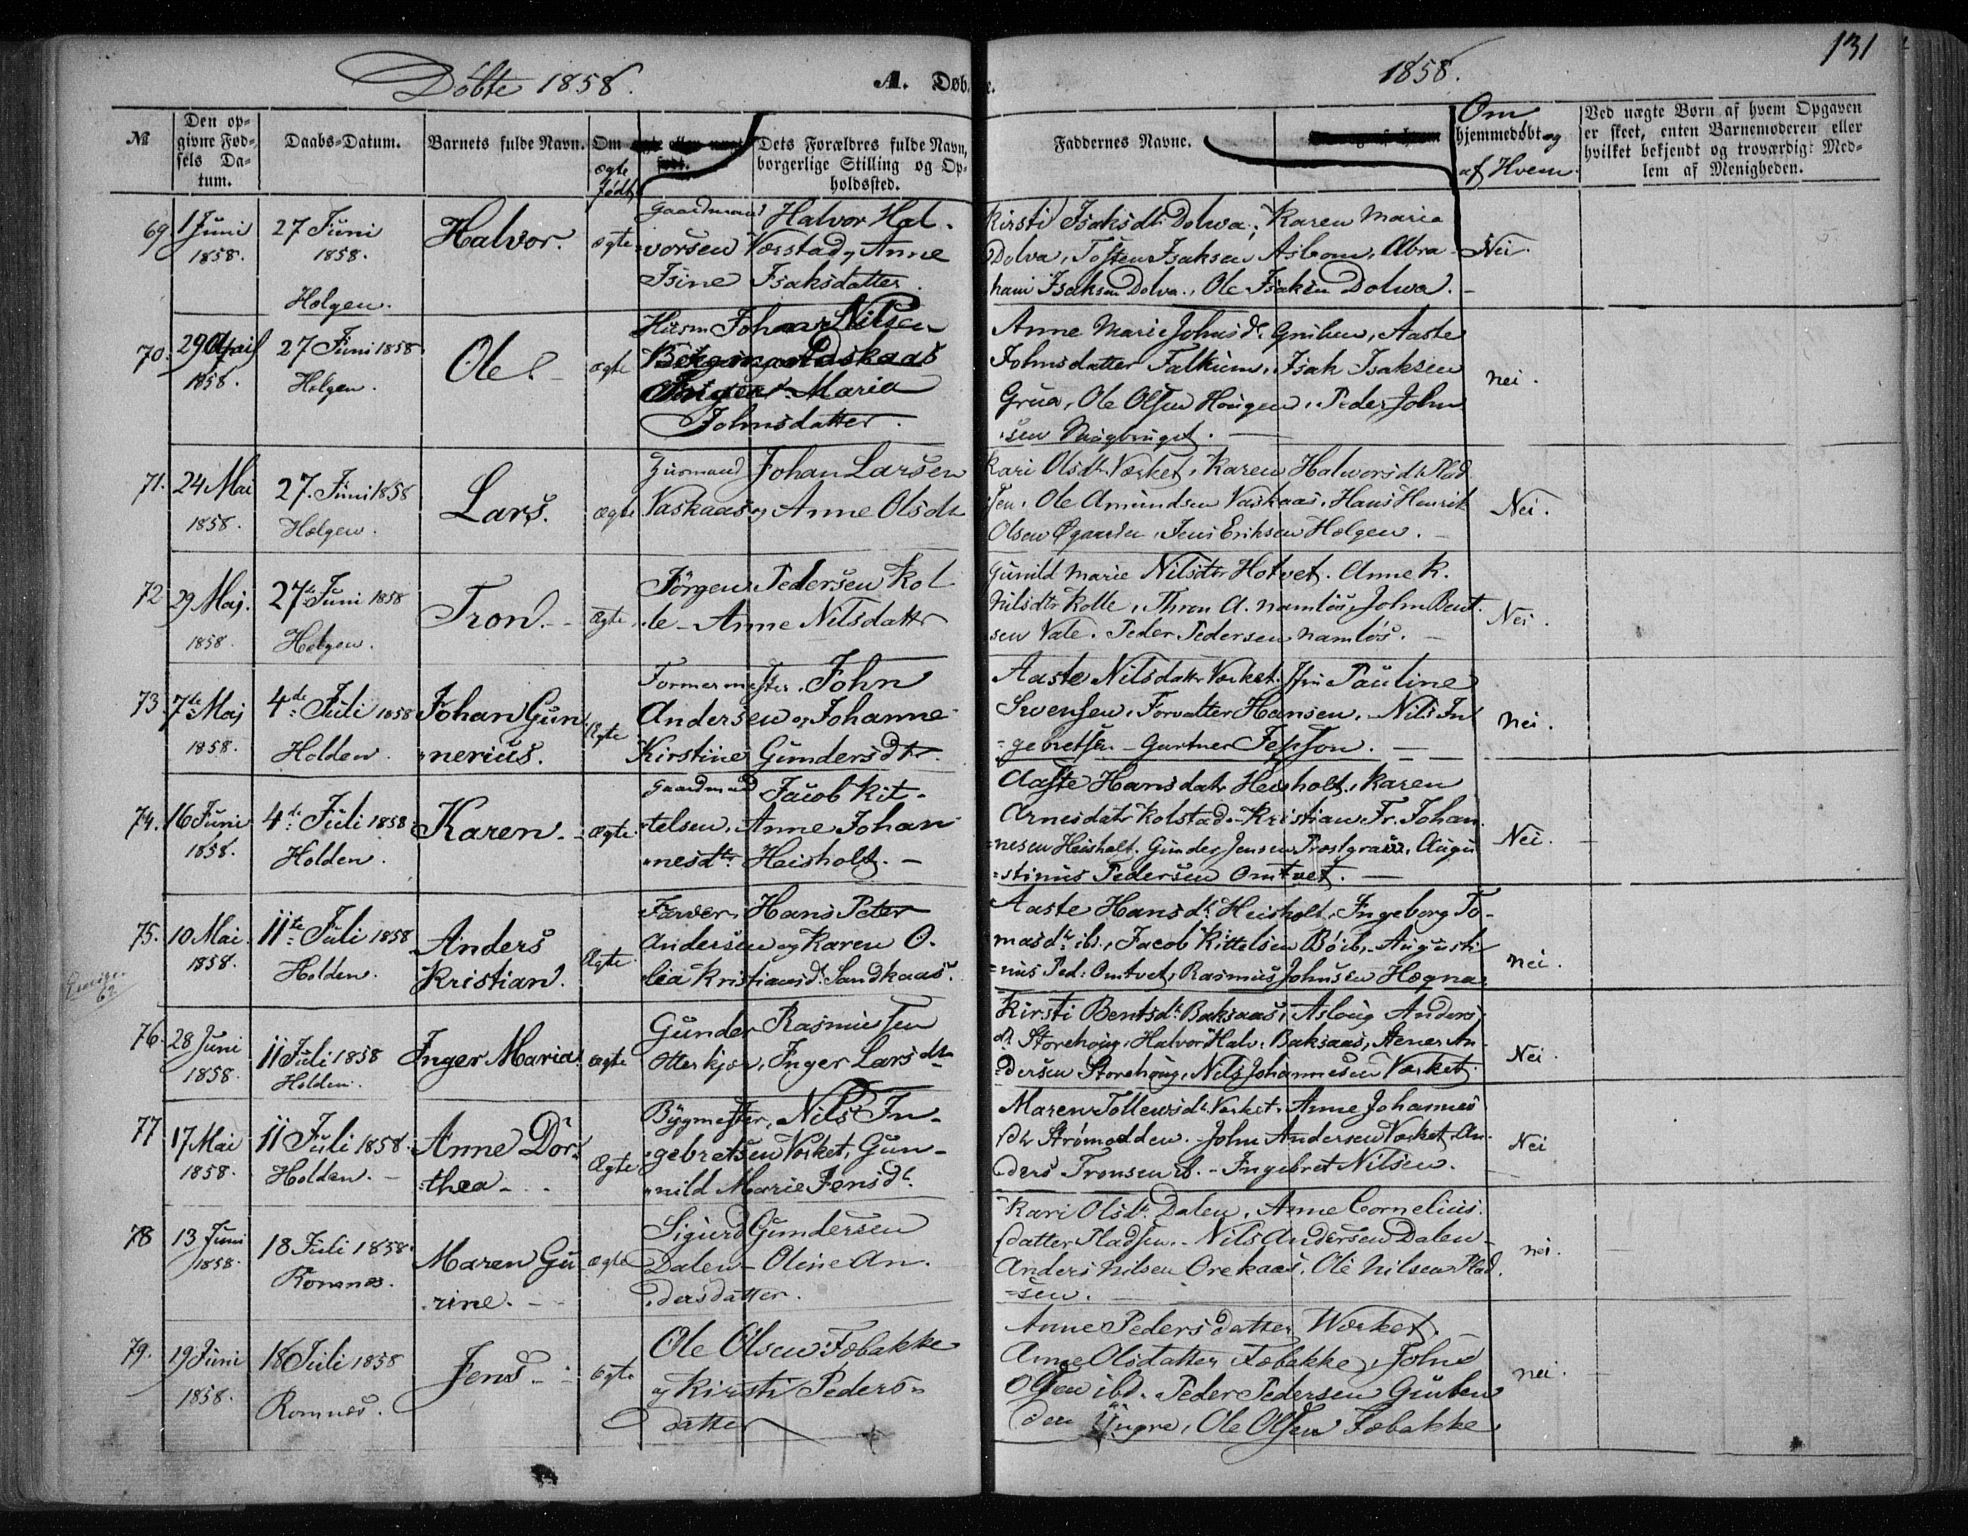 131
Döbte 1858.
A. Døbte.
1858.
№
Den op-
givne Fød-
sels Da-
tum.
Daabs-Datum.
Barnets fulde Navn.
Om
ægte
født
Dets Forældres fulde Navn,
borgerlige Stilling og Op-
holdssted.
Faddernes Navne.
Om
hjemmedøbt og
af Hvem.
Ved uægte Børn af hvem Opgaven
er skeet, enten Barnemoderen eller
hvilket bekjendt og troværdigt Med-
lem af Menigheden.
69
1 Juni
1858.
27 Juni
1858.
Holgen.
Halvor.
ægte
Gaardmand Halvor Hal-
vorsen Værstad og Anne
Isine Isaksdatter.
Kirsti Isaksdtr Dolva, Karen Maria
Dolva, Tosten Isaksen Asbom, Abra-
ham Isaksen Dolva, Ole Isaksen Dolwa.
Nei.
70.
29 April
1858.
27 Juni 1858
Helgen.
Ole
ægte
Huusm Johan Nilsen
Maria
Johnsdatter.
Anne Marie Johnsd. Gruben, Aaste
Johnsdatter Falkum, Isak Isaksen
Grua, Ole Olsen Hougen, Peder John
sen
nei.
71.
24 Mai
1858.
27. Juni 1858
Hælgen.
Lars.
ægte
Huusmand Johan Larsen
Vaskaas og Anne Olsdtr
Kari Olsdtr Værket, Karen Halvorsdtr Plad
sen, Ole Amundsen Vaskaas, Hans Henrik
Olsen Øgaarden, Jens Eriksen Hælgen.
Nei.
72
29 Maj.
1858.
27de Juni 1858
Helgen.
Tron.
Ægte
Jörgen Pedersen Kol
le - Anne Nilsdattr
Gunild Marie Nilsdtr Hotvet. Anne K.
Nilsdtr Kolle, Thron A. Namløs, John Bent
sen Vale. Peder Pedersen Namløs.
Nei.
73
7de Maj
1858.
4de Juli 1858
Holden.
Johan Gun
nerius.
Ægte
Formermester John
Andersen og Johanne
Kirstine Gundersdtr.
Aaste Nilsdattr Værket. Jfru Pauline
Svensen, Forvalter Hansen, Nils In
gebretsen. - Gartner Jepson.
nei.
74.
16 Juni
1858.
4de Juli 1858
Holden.
Karen.
ægte
Gaardmand Jacob Kit-
telsen, Anne Johan
nesdtr Heisholt.
Aaste Hansdatr Heisholt, Karen
Arnesdatr Kolstad. Kristian Fr. Johan
nesen Heisholt. Gunder Jensen Prostgraver, Augu
stinus Pedersen Omtvet.
Nei.
75.
10 Mai
1858.
11te Juli 1858
Holden.
Anders
Kristian.
Ægte
Farver Hans Peter
Andersen og Karen O.
lea Kristiansd. Sandkaas.
Aaste Hansdr Heisholt, Ingeborg To-
masdtr ib., Jacob Kittelsen Bö ib., Augusti-
nus Ped. Omtvet, Rasmus Johnsen Hægna
nei.
62
76.
28 Juni
1858.
11 Juli 1858
Holden.
Inger Maria
ægte
Gunder Rasmussen
Otterkjær, Inger Larsdtr
Kirsti Bentsdtr Baksaas, Aslaug Anders
dr Storehoug, Halvor Halv. Baksaas, Stener An
dersen Storehoug, Nils Johannesen Værket.
Nei.
77
17 Mai
1858.
11 Juli 1858.
Holden.
Anne Dor
thea
Ægte
Bygmester, Nils In-
gebretsen Værket, Gun-
nild Marie Jensdr.
Maren Tollevsdr Værket, Anne Johannes
dtr Strømodden. John Andersen Værket An-
ders Tronsen ib. - Ingebret Nilsen.
Nei
78
13 Juni
1858.
18 Juli 1858.
Romnæs.
Maren Gu
rine.
ægte
Sigurd Gundersen
Dalen - Oline An.
dersdatter.
Kari Olsdr. Dalen, Anne Cornelius.
datter Pladsen. - Nils Andersen Dalen
Anders Nilsen Orekaas, Ole Nilsen Plad.
sen.
nei.
79.
19 Juni
1858.
18 Juli 1858
Romnæs.
Jens
ægte
Ole Olsen Fæbakke
og Kirsti Peders-
datter
Anne Pedersdatter Værket.
Anne Olsdatter Fæbakke, John
Olsen ibd. Peder Pedersen Gruben
den Yngre, Ole Olsen Fæbakke
nei.